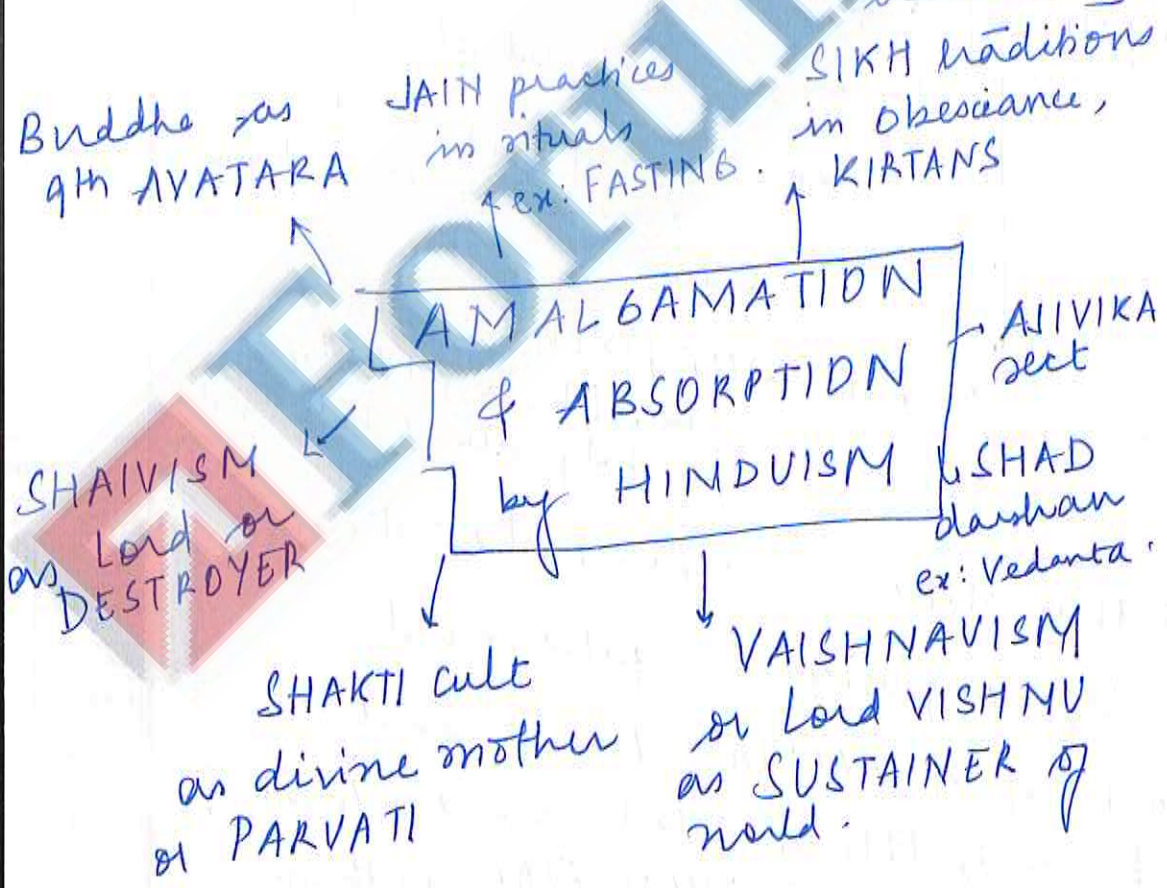 Buddha as
9th AVATARA
JAIN practices
in rituals
ex: FASTING.
SIKH traditions
in obesciance,
KIRTANS
AMALGAMATION
& ABSORPTION
by HINDUISM
AJIVIKA
sect
SHAD
darshan
ex: Vedanta.
SHAIVISM
as Lord or
DESTROYER
SHAKTI cult
as divine mother
or PARVATI
VAISHNAVISM
or Lord VISHNU
as SUSTAINER of
world.
Forum